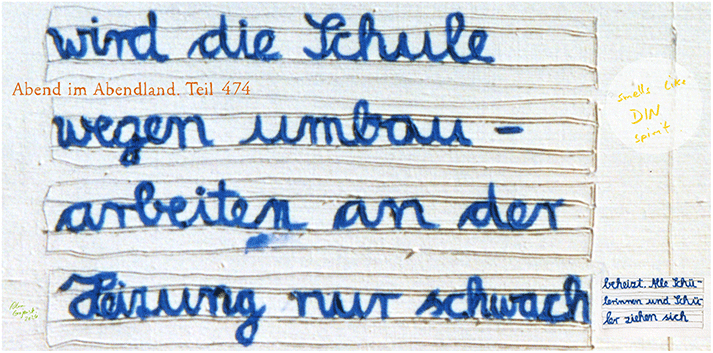 wird die Schule
Abend im Abendland. Teil 474
smells like
DIN
spirit
wegen umbau -
arbeiten an der
Heizung nur schwach
beheizt. Alle Schü-
lerinnen und Schü-
ler ziehen sich